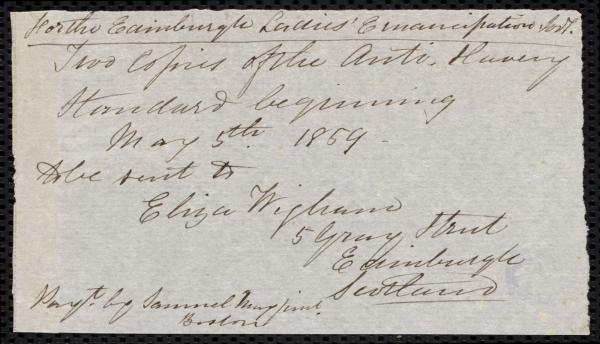 For the Edinburgh Ladies' Emancipation Socty.
Two Copies of the Anti-Slavery
Standard beginning
May 5th. 1859.
to be sent to
Eliza Wigham
5 Gray Street
Edinburgh
Scotland
Payt. by Samuel May Jun.
Boston